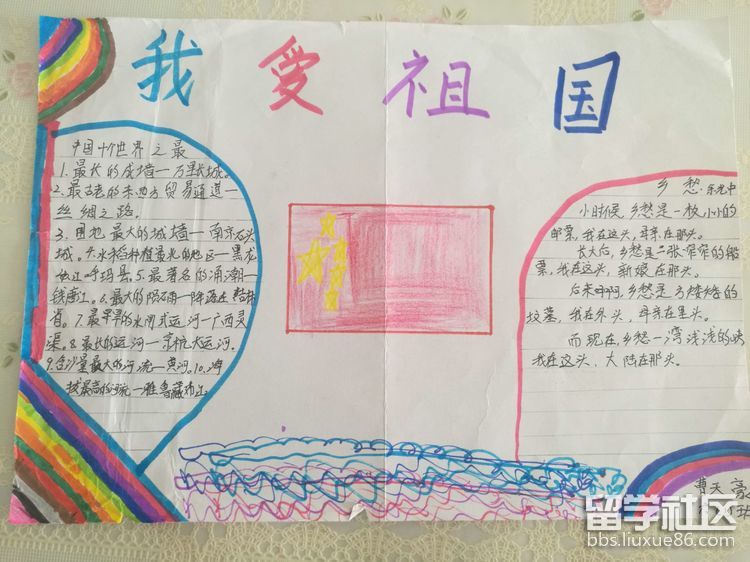 我爱祖国
中国十个世界之最
1.最长的城墙一万里长城。
2.最古老的东西方贸易通道一
丝绸之路。
3.围地最大的城墙一南京石头
城。4.水稻种植最北的地区一黑龙
江呼玛县.5.最著名的涌潮一
钱塘江。6.最大的陨石雨一降落在吉林
省。7.最早的水闸式运河一广西灵
渠。8.最长的运河一京杭大运河.
9.含沙量最大的河流一黄河.10.海
拔最高的河流一雅鲁藏布江
乡愁.余光中
小时候,乡愁是一枚小小的
邮票,我在这头,母亲在那头。
长大后,乡愁是一张窄窄的船
票,我在这头,新娘在那头。
后来啊,乡愁是一方矮矮的
坟墓,我在外头,母亲在里头。
而现在,乡愁一湾浅浅的海峡
我在这头,大陆在那头。
曹天
留学社区
bbs.liuxue86.com